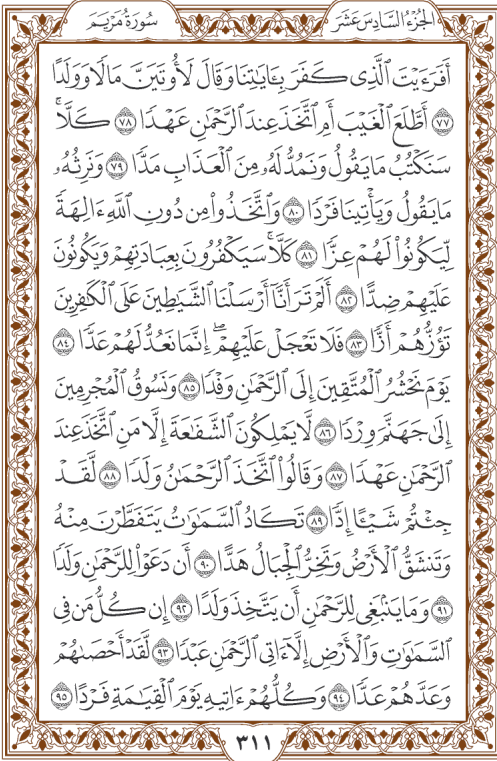 الجُزْءُ السَّادِسَ عَشَرَ
سُورَةُ مَرْيَم
أَفَرَءَيْتَ ٱلَّذِى كَفَرَ بِـَٔايَٰتِنَا وَقَالَ لَأُوتَيَنَّ مَالًا وَوَلَدًا
٧٧ أَطَّلَعَ ٱلْغَيْبَ أَمِ ٱتَّخَذَ عِندَ ٱلرَّحْمَٰنِ عَهْدًا ٧٨ كَلَّا ۚ
سَنَكْتُبُ مَا يَقُولُ وَنَمُدُّ لَهُۥ مِنَ ٱلْعَذَابِ مَدًّا ٧٩ وَنَرِثُهُۥ
مَا يَقُولُ وَيَأْتِينَا فَرْدًا ٨٠ وَٱتَّخَذُوا۟ مِن دُونِ ٱللَّهِ ءَالِهَةً
لِّيَكُونُوا۟ لَهُمْ عِزًّا ٨١ كَلَّا ۚ سَيَكْفُرُونَ بِعِبَادَتِهِمْ وَيَكُونُونَ
عَلَيْهِمْ ضِدًّا ٨٢ أَلَمْ تَرَ أَنَّآ أَرْسَلْنَا ٱلشَّيَٰطِينَ عَلَى ٱلْكَٰفِرِينَ
تَؤُزُّهُمْ أَزًّا ٨٣ فَلَا تَعْجَلْ عَلَيْهِمْ ۖ إِنَّمَا نَعُدُّ لَهُمْ عَدًّا ٨٤
يَوْمَ نَحْشُرُ ٱلْمُتَّقِينَ إِلَى ٱلرَّحْمَٰنِ وَفْدًا ٨٥ وَنَسُوقُ ٱلْمُجْرِمِينَ
إِلَىٰ جَهَنَّمَ وِرْدًا ٨٦ لَّا يَمْلِكُونَ ٱلشَّفَٰعَةَ إِلَّا مَنِ ٱتَّخَذَ عِندَ
ٱلرَّحْمَٰنِ عَهْدًا ٨٧ وَقَالُوا۟ ٱتَّخَذَ ٱلرَّحْمَٰنُ وَلَدًا ٨٨ لَّقَدْ
جِئْتُمْ شَيْـًٔا إِدًّا ٨٩ تَكَادُ ٱلسَّمَٰوَٰتُ يَتَفَطَّرْنَ مِنْهُ
وَتَنشَقُّ ٱلْأَرْضُ وَتَخِرُّ ٱلْجِبَالُ هَدًّا ٩٠ أَن دَعَوْا۟ لِلرَّحْمَٰنِ وَلَدًا
٩١ وَمَا يَنۢبَغِى لِلرَّحْمَٰنِ أَن يَتَّخِذَ وَلَدًا ٩٢ إِن كُلُّ مَن فِى
ٱلسَّمَٰوَٰتِ وَٱلْأَرْضِ إِلَّآ ءَاتِى ٱلرَّحْمَٰنِ عَبْدًا ٩٣ لَّقَدْ أَحْصَىٰهُمْ
وَعَدَّهُمْ عَدًّا ٩٤ وَكُلُّهُمْ ءَاتِيهِ يَوْمَ ٱلْقِيَٰمَةِ فَرْدًا ٩٥
٣١١